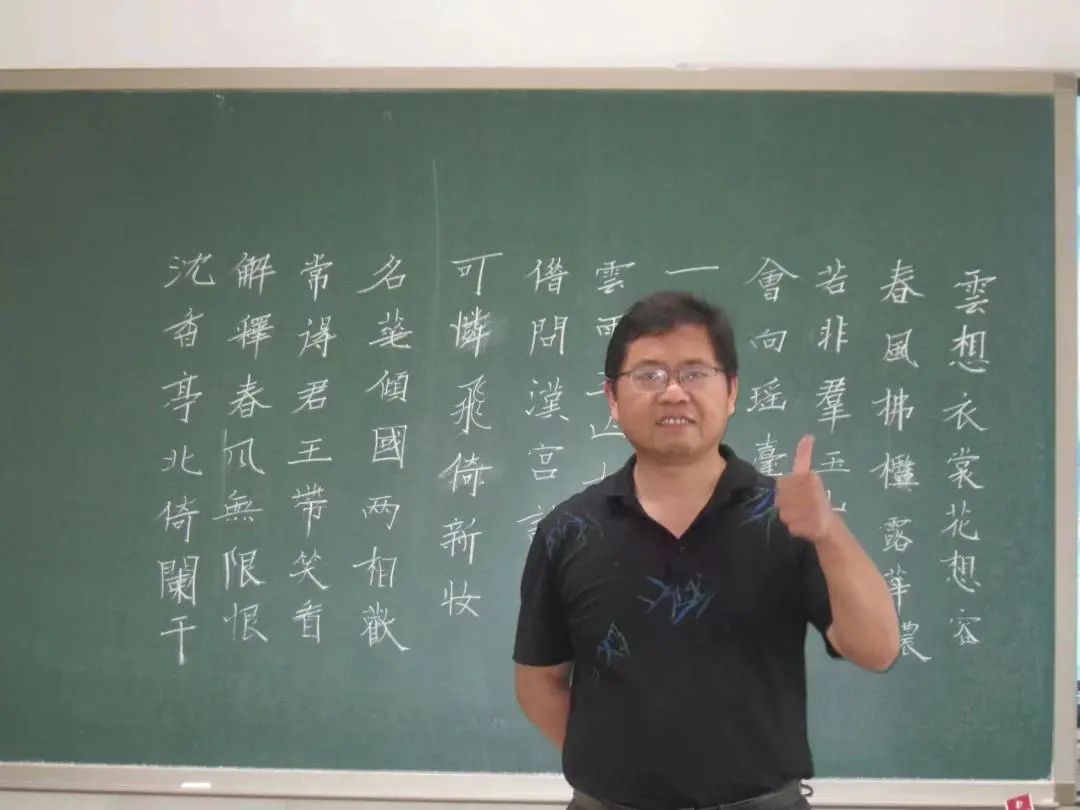 雲想衣裳花想容
春風拂檻露華濃
若非羣玉
會向瑶臺
一
雲雨
借問漢宮
可憐飛倚新妆
名華傾國两相歡
常得君王带笑看
解釋春风無限恨
沈香亭北倚闌干